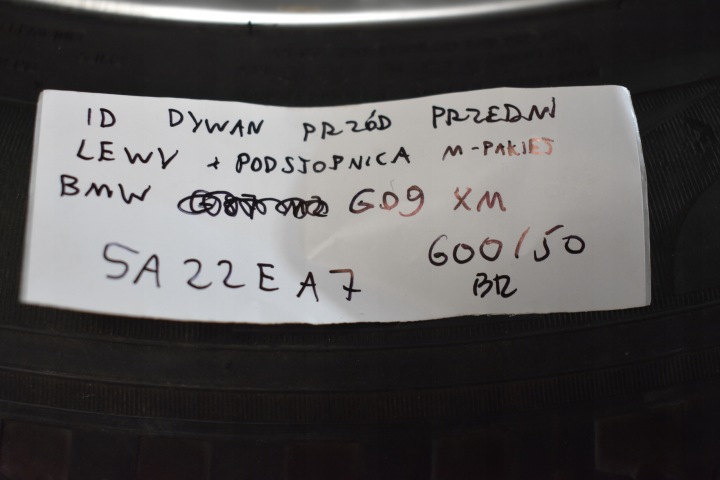 ID DYWAN PRZÓD PRZEDNI
LEWY + PODSTOPNICA M-PAKIET
BMW G09 XM
5A22EA7
600/50
BR